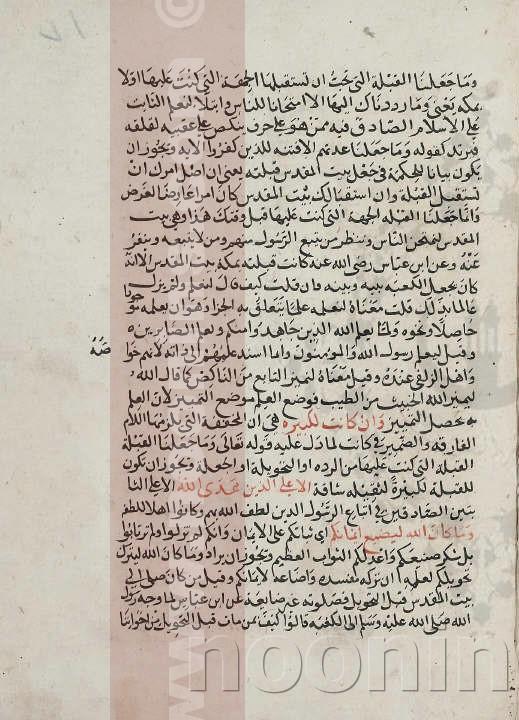 وما جعلنا القبلة التي تحب ان تستقبلها الجهة التي كنت عليها اولا
بمكة يعني وما رددناك اليها الا امتحانا للناس وابتلا لنعلم الثابت
على الاسلام الصادق فيه ممن هو على حرف ينكص على عقبيه لقلقه
فيرتد كقوله وما جعلنا عدتهم الا فتنة للذين كفروا الاية ويجوز ان
يكون بيانا للحكمة في جعل بيت المقدس قبلته يعني ان اصل امرك ان
تستقبل القبلة وان استقبالك بيت المقدس كان امرا عارضا لغرض
وانما جعلنا القبلة الجهة التي كنت عليها قبل وقتك هذا وهي بيت
المقدس لنمتحن الناس وننظر من يتبع الرسول منهم ومن لا يتبعه وينفر
عنه وعن ابن عباس رضي الله عنه كانت قبلته بمكة بيت المقدس الا انه
كان يجعل الكعبة بينه وبينه وان قلت كيف قال لنعلم ولم يزل
عالما بذلك قلت معناه لنعلمه علما يتعلق به الجزا وهو ان يعلمه موجودا
حاصلا ونحوه ولما يعلم الله الذين جاهدوا منكم ويعلم الصابرين
وقيل ليعلم رسول الله والمومنون وانما اسند علمهم الى ذاته لانهم خوا
صه
واهل الزلفى عنده وقيل معناه لنميز التابع من الناكص كما قال الله
ليميز الله الخبيث من الطيب فوضع العلم موضع التمييز لان العلم
به يحصل التمييز وان كانت لكبيرة هي ان المخففة التي يلزمها اللام
الفارقة والضمير في كانت لما دل عليه قوله تعالى وما جعلنا القبلة
القبلة التي كنت عليها من الردة او التحويلة او الجعلة ويجوز ان يكون
للقبلة لكبيرة لثقيلة شاقة الا على الذين هدى الله الا على الثا
بتين الصادقين في اتباع الرسول الذين لطف الله بهم وكانوا اهلا للطفه
وما كان الله ليضيع ايمانكم اي ثباتكم على الايمان وانكم لم تزلوا ولم ترتابوا
بل شكر صنيعكم واعد لكم الثواب العظيم ويجوز ان يراد وما كان الله ليترك
تحويلكم لعلمه ان تركه مفسدة واضاعة لايمانكم وقيل من كان صلى الى
بيت المقدس قبل التحويل فصلوته غير ضايعة عن ابن عباس لما وجه رسول
الله صلى الله عليه وسلم الى الكعبة قالوا كيف بمن مات قبل التحويل من اخواننا
noonin